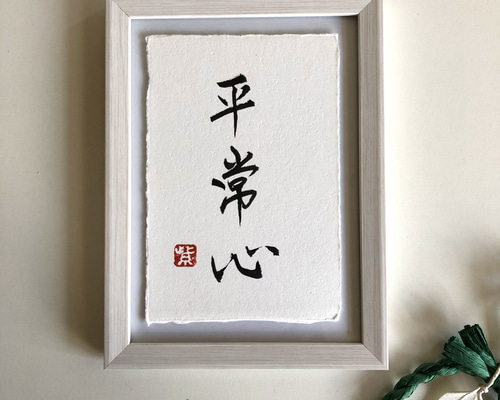 平常心
紫